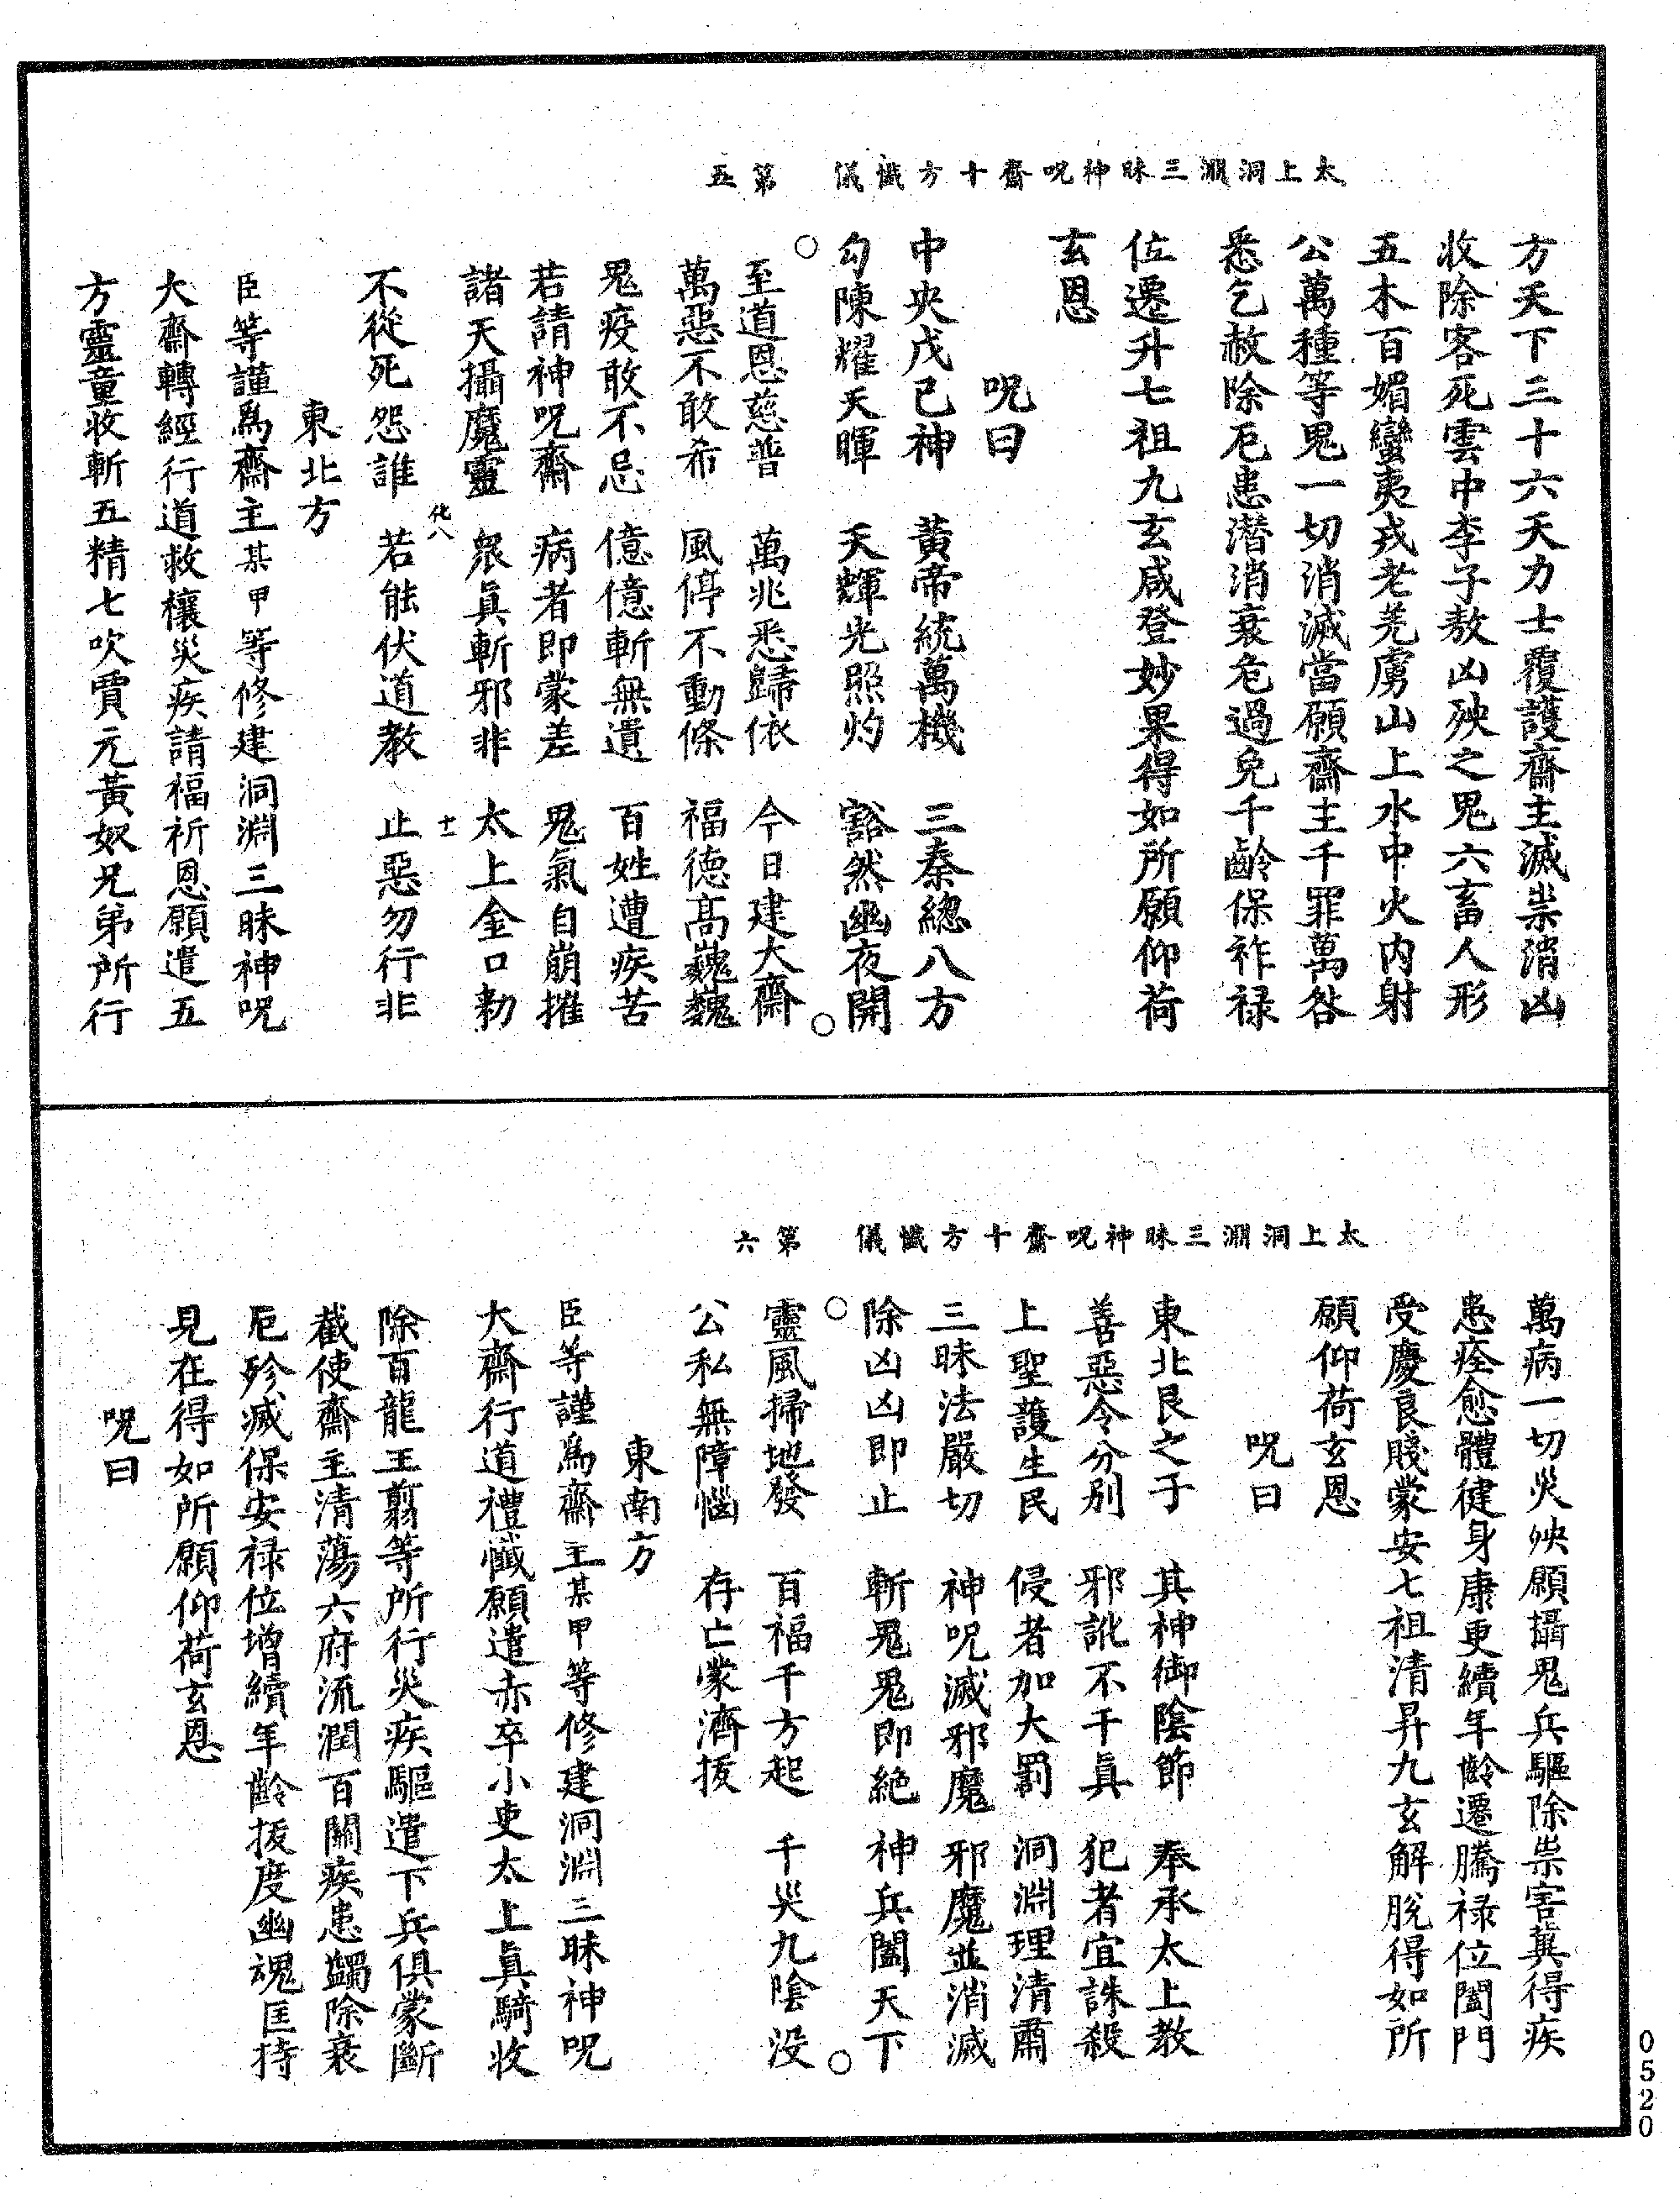 太上洞淵三昧神呪齋十方懺儀　第五
方天下三十六天力士覆護齋主滅祟消凶
收除客死雲中李子敖凶殃之鬼六畜人形
五木百媚蠻夷戎老羌虜山上水中火内射
公萬種等鬼一切消滅當願齋主千罪萬咎
悉乞赦除厄患潜消衰危過免千齡保祚禄
位遷升七祖九玄咸登妙果得如所願仰荷
玄恩
呪曰
中央戊己神　黃帝統萬機　三秦總八方
勾陳耀天暉　天輝光照灼　豁然幽夜開
至道恩慈普　萬兆悉歸依　今日建大齋
萬惡不敢希　風停不動條　福德髙巍巍
鬼疫敢不忌　億億斬無遺　百姓遭疾苦
若請神呪齋　病者即蒙差　鬼氣自崩摧
諸天攝魔靈　衆眞斬邪非　太上金口勑
化八　十一
不從死怨誰　若能伏道教　止惡勿行非
東北方
臣等謹爲齋主某甲等修建洞淵三昧神呪
大齋轉經行道救禳災疾請福祈恩願遣五
方靈童收斬五精七吹賈元黃奴兄弟所行
太上洞淵三昧神呪齋十方懺儀　第六
萬病一切災殃願攝鬼兵驅除祟害冀得疾
患痊愈體健身康更續年齡遷騰禄位闔門
受慶良賤蒙安七祖清昇九玄解脫得如所
願仰荷玄恩
呪曰
東北艮之子　其神御陰節　奉承太上教
善惡令分別　邪訛不干眞　犯者宜誅殺
上聖護生民　侵者加大罰　洞淵理清肅
三昧法嚴切　神呪滅邪魔　邪魔並消滅
除凶凶即止　斬鬼鬼即絶　神兵闔天下
靈風掃地發　百福千方起　千災九陰没
公私無障惱　存亡蒙濟拔
東南方
臣等謹爲齋主某甲等修建洞淵三昧神呪
大齋行道禮懺願遣赤卒小吏太上眞騎收
除百龍王翦等所行災疾驅遣下兵俱蒙斷
截使齋主清蕩六府流潤百關疾患蠲除衰
厄殄滅保安禄位增續年齡拔度幽魂匡持
見在得如所願仰荷玄恩
呪曰
0520